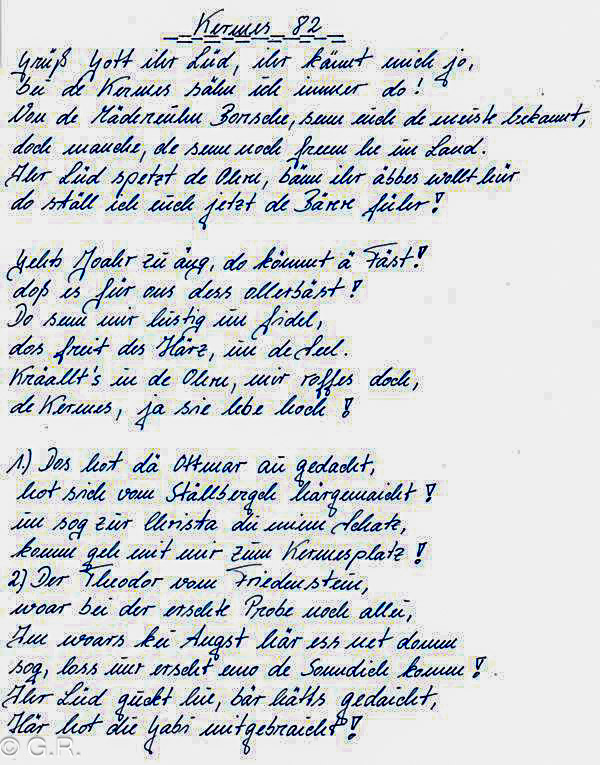 Kermes 82
Grüß Gott ihr Lüd, ihr kännt mich jo,
bei de Kermes sähn ich immer do!
Von de Mäderühn Borsche, senn euch de meiste bekannt,
doch manche, de senn noch fremm he im Land.
Ihr Lüd spetzt de Ohrn, bänn ihr äbbes wollt hür
do ställ ich euch jetzt de Bärre führ!
Gehts Joahr zu äng, do kömmt ä Fäst!
doß is für ons dess ollerbäst!
Do senn mir lustig un fidel,
dos freit des Härz, un de Seel.
Kräallt's in de Ohrn, mir roffes doch,
de Kermes, ja sie lebe hoch!
1.) Dos hot dä Ottmar au gedacht,
hot sich vom Ställbergch härgemaicht!
un sog zur Christa du minn Schatz,
komm geh mit mir zum Kermesplatz!
2) Der Theodor vom Friedenstein,
woar bei der erschte Probe noch allei,
Inn woars kei Angst här ess net domm
sog, loss mir erscht emo de Sonndich komm!
Ihr Lüd guckt hie, bär hätts gedaicht,
Här hot die Gabi mitgebraicht!
© G.R.